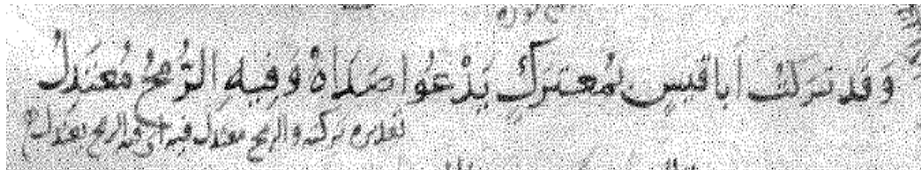 وَقَد تَرَكتُ اَبا قَيسٍ بمُعتَرَكٍ يَدْعُوا صَدَاهُ وَفِيهِ الرُّمحُ مُعتَدِلُ
تقديره تركته والرمح معتدل فيه اى فيه الرمح معتدل